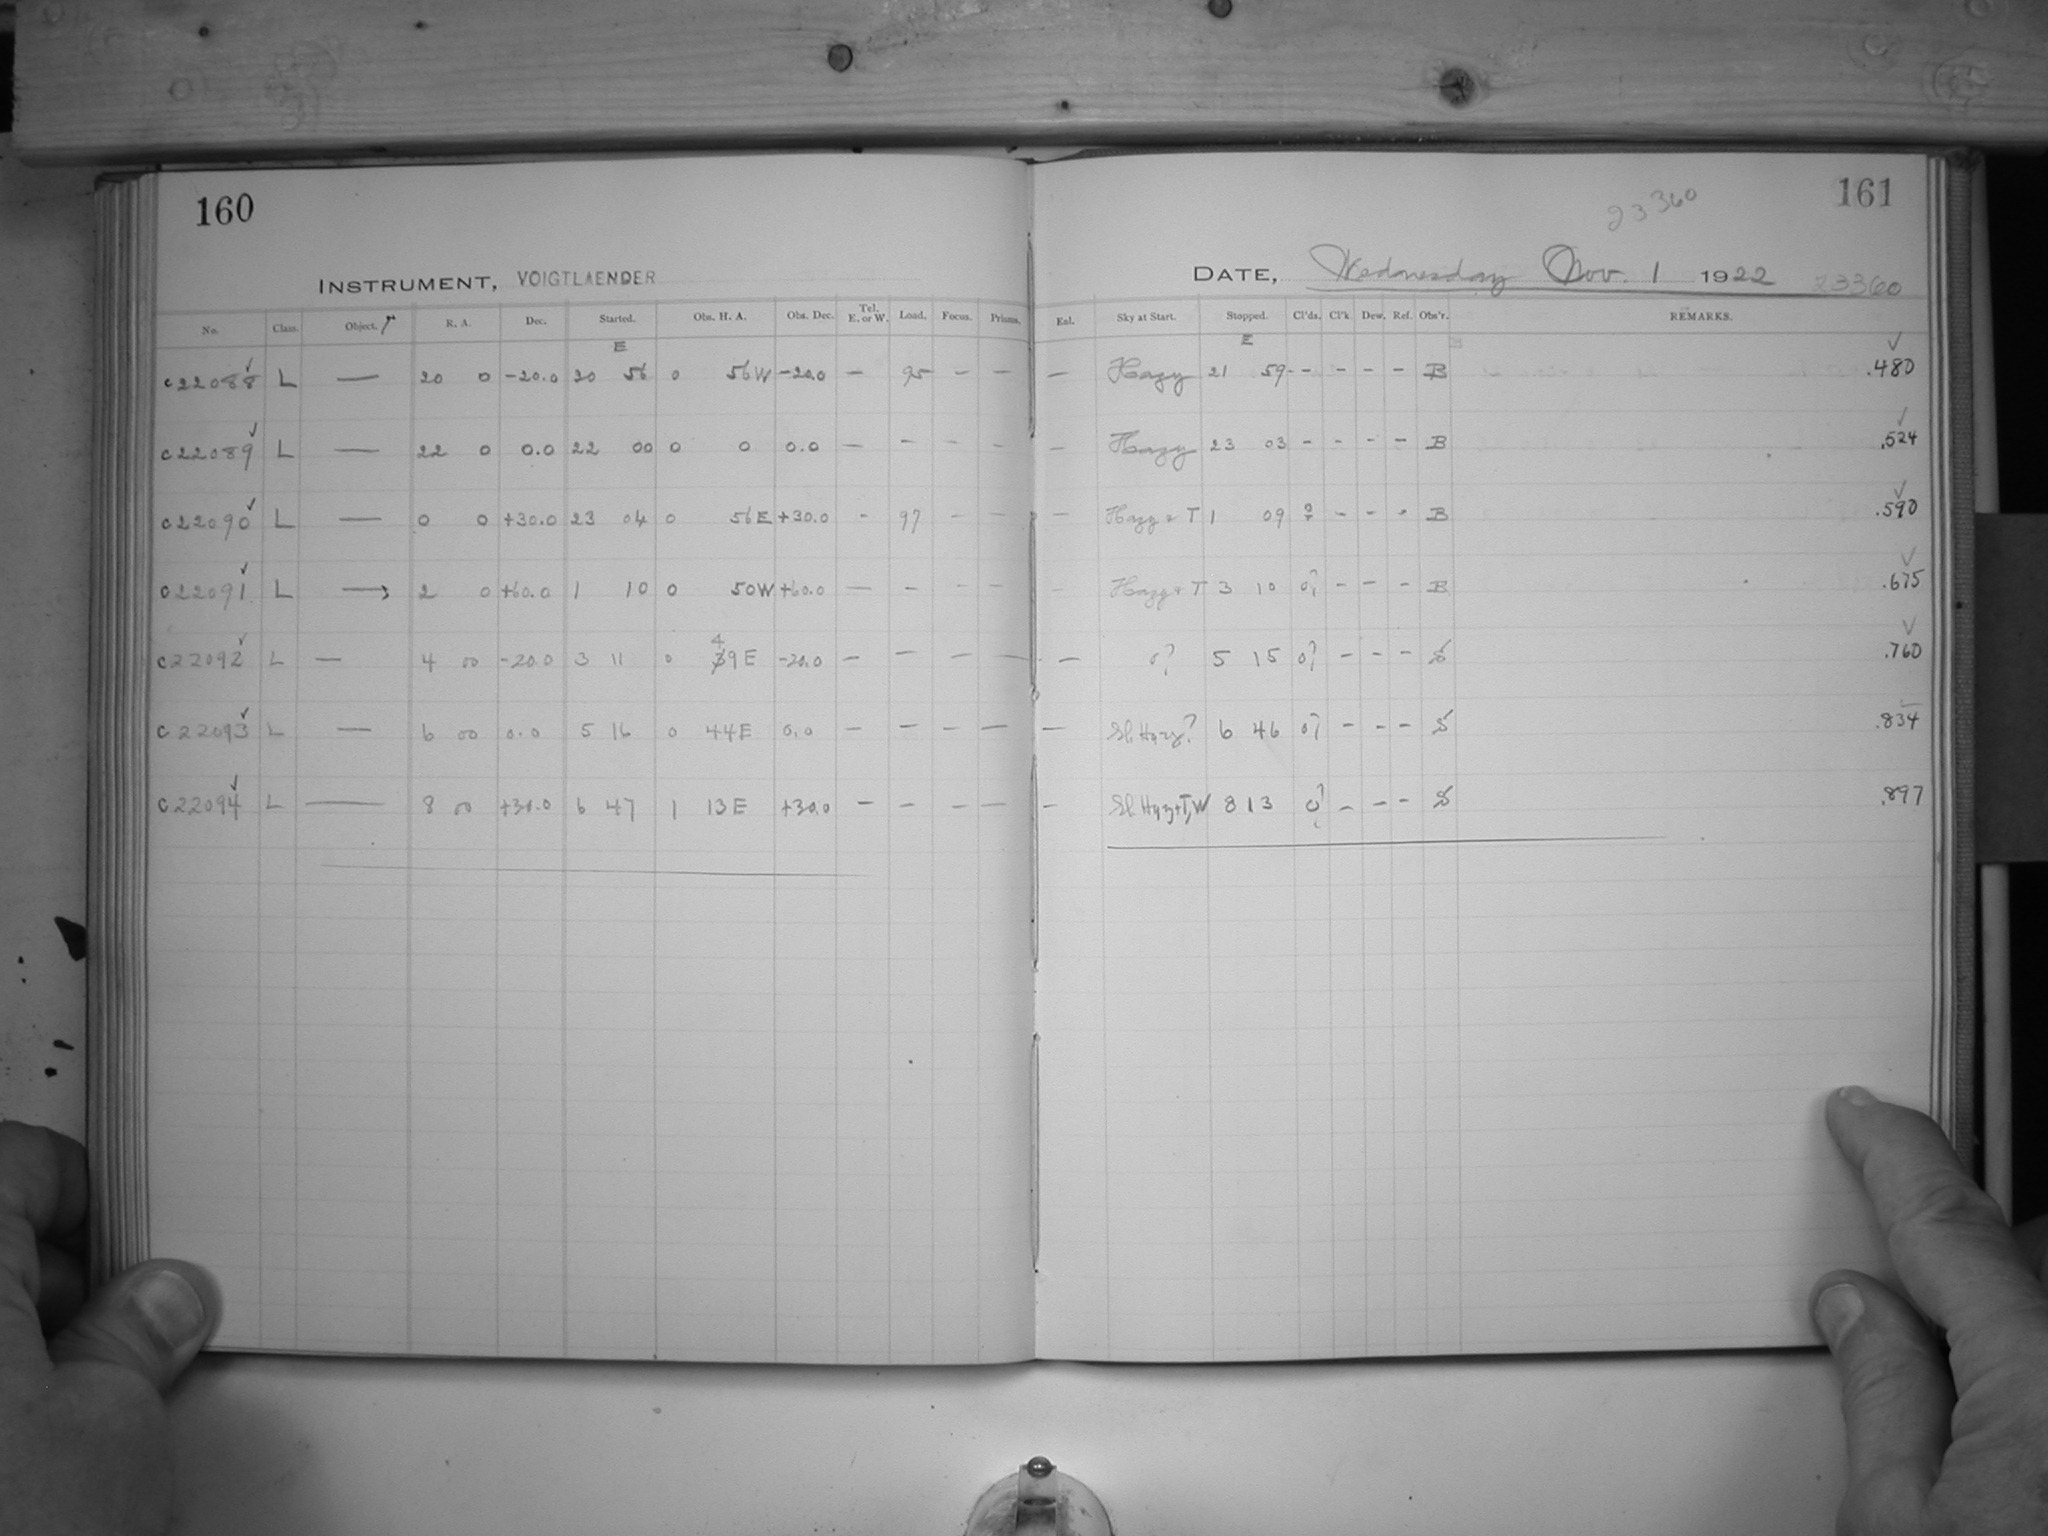 160
23360
161
INSTRUMENT, VOIGTLAENDER
DATE, Wednesday Nov. 1 1922 23360
No. Class. Object. R. A. Dec. Started. Obs. H. A. Obs. Dec. Tel. E. or W. Load. Focus. Prisms. Exl. Sky at Start. Stopped. Cl'ds. Cl'k Dew. Ref. Obs'r. REMARKS.
E E
c22088 ✓ L — 20 0 -20.0 20 56 0 56W -20.0 — 95 – – — Hazy 21 59 - - - - B .480 ✓
c22089 ✓ L — 22 0 0.0 22 00 0 0 0.0 — - - - — Hazy 23 03 - - - - B .524 ✓
c22090 ✓ L — 0 0 +30.0 23 04 0 56E +30.0 - 97 - - — Hazy + T 1 09 ? - - - B .590 ✓
c22091 ✓ L — 2 0 +60.0 1 10 0 50W +60.0 — - - - — Hazy + T 3 10 0? - - - B .675 ✓
c22092 ✓ L — 4 00 -20.0 3 11 0 49E -20.0 — — — — — 0? 5 15 0? - - - S .760 ✓
c22093 ✓ L — 6 00 0.0 5 16 0 44E 0.0 — — — — — Sl Hazy? 6 46 0? - - - S .834
c22094 ✓ L — 8 00 +30.0 6 47 1 13E +30.0 — — — — - Sl Hazy+T,W 8 13 0? - - - S .897